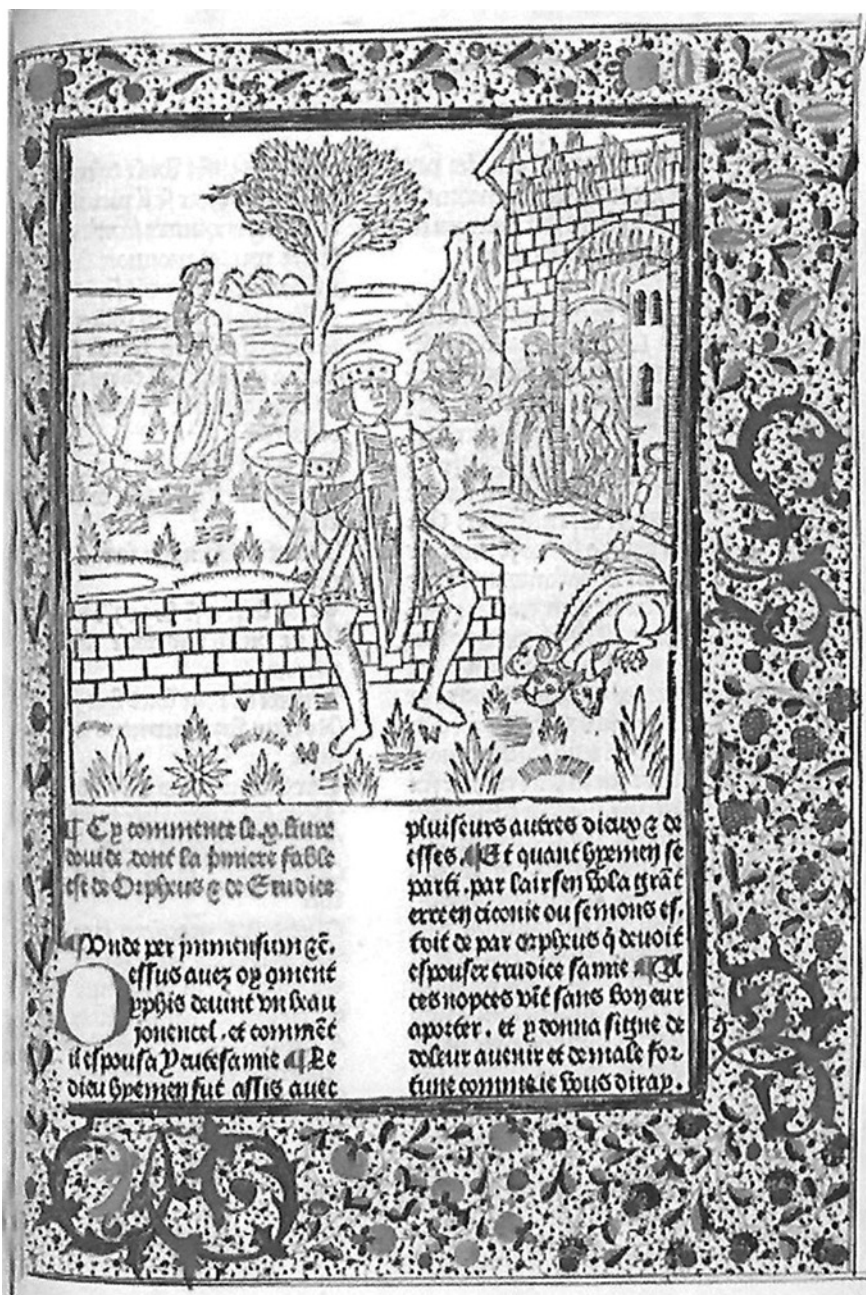 ¶ Cy commence le .x. liure
douide. dont la p̄miere fable
est de Orpheus ⁊ de Erudice
¶ Vnde per jmmensum ⁊c̄.
Dessus auez oy q̄ment
yphis deuint vn beau
jouencel. et commēt
il espousa Yentesamie ¶ Le
dieu hymen fut assis auec
pluiseurs autres dieux ⁊ de
esses. ¶ Et quant hymen se
parti. par lair sen vola grāt
erre en ciconie ou semons es.
toit de par orpheus q̄ deuoit
espouser erudice samie ¶ Al
ces nopces vīt sans bon eur
aporter. et y donna signe de
doleur auenir et de male for-
tune comme ie vous diray.